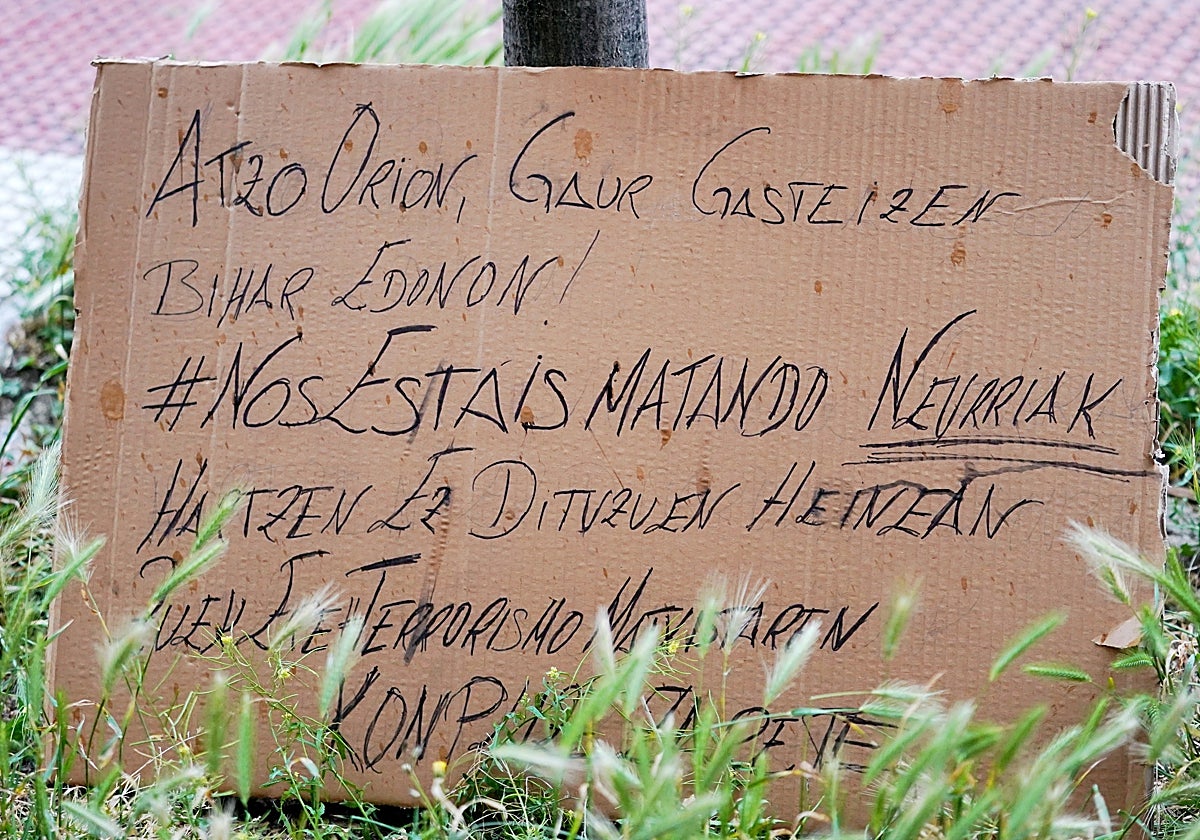 ATZO ORION, GAUR GASTEIZEN
BIHAR EDONON!
#NOSESTAIS MATANDO NEURRIAK
HARTZEN EZ DITUZUEN HEINEAN
ZUEK ERE TERRORISMO MATXISTAREN